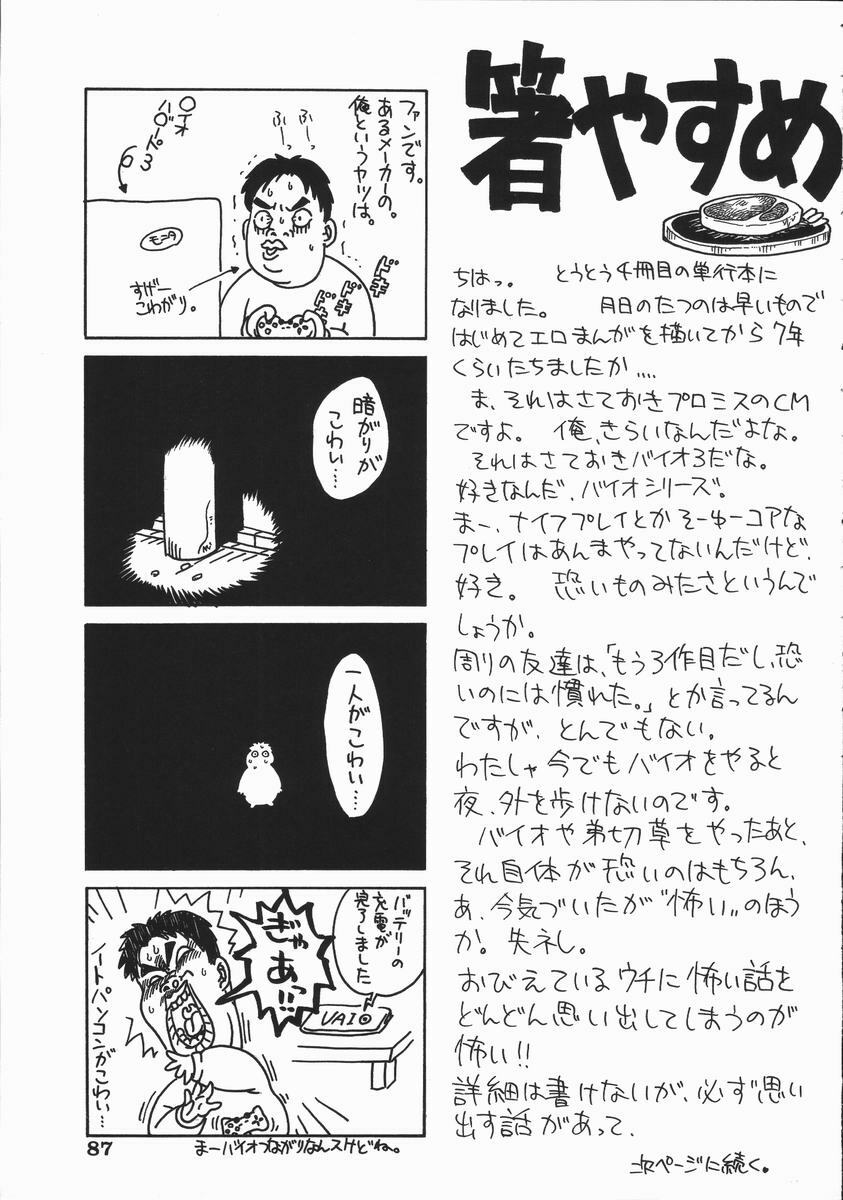 箸やすめ
ちはっ。　とうとう4冊目の単行本に
なりました。　月日のたつのは早いもので
はじめてエロまんがを描いてから7年
くらいたちましたか....
ま、それはさておきプロミスのCM
ですよ。　俺、きらいなんだよな。
それはさておきバイオ3だな。
好きなんだ、バイオシリーズ。
まー、ナイフプレイとかそーゆーコアな
プレイはあんまやってないんだけど、
好き。　恐いものみたさというんで
しょうか。
周りの友達は、「もう3作目だし、恐
いのには慣れた。」とか言ってるん
ですが、とんでもない。
わたしゃ今でもバイオをやると
夜、外を歩けないのです。
バイオや弟切草をやったあと、
それ自体が恐いのはもちろん、
あ、今気づいたが〝怖い〟のほう
か。失ネし。
おびえているウチに怖い話を
どんどん思い出してしまうのが
怖い!!
詳細は書けないが、必ず思い
出す話があって、
次ページに続く。
俺というヤツは。
あるメーカーの。
ファンです。
ふーっ
ふーっ
〇イオ
ハ〇ード3
モニタ
すげー
こわがり。
ドキ
ドキ
ドキ
暗がりが
こわい…
一人がこわい…
バッテリーの
充電が
完了しました
ぎゃあっ!!
VAIO
ノートパソコンがこわい…
まーバイオつながりなんスけどね。
87